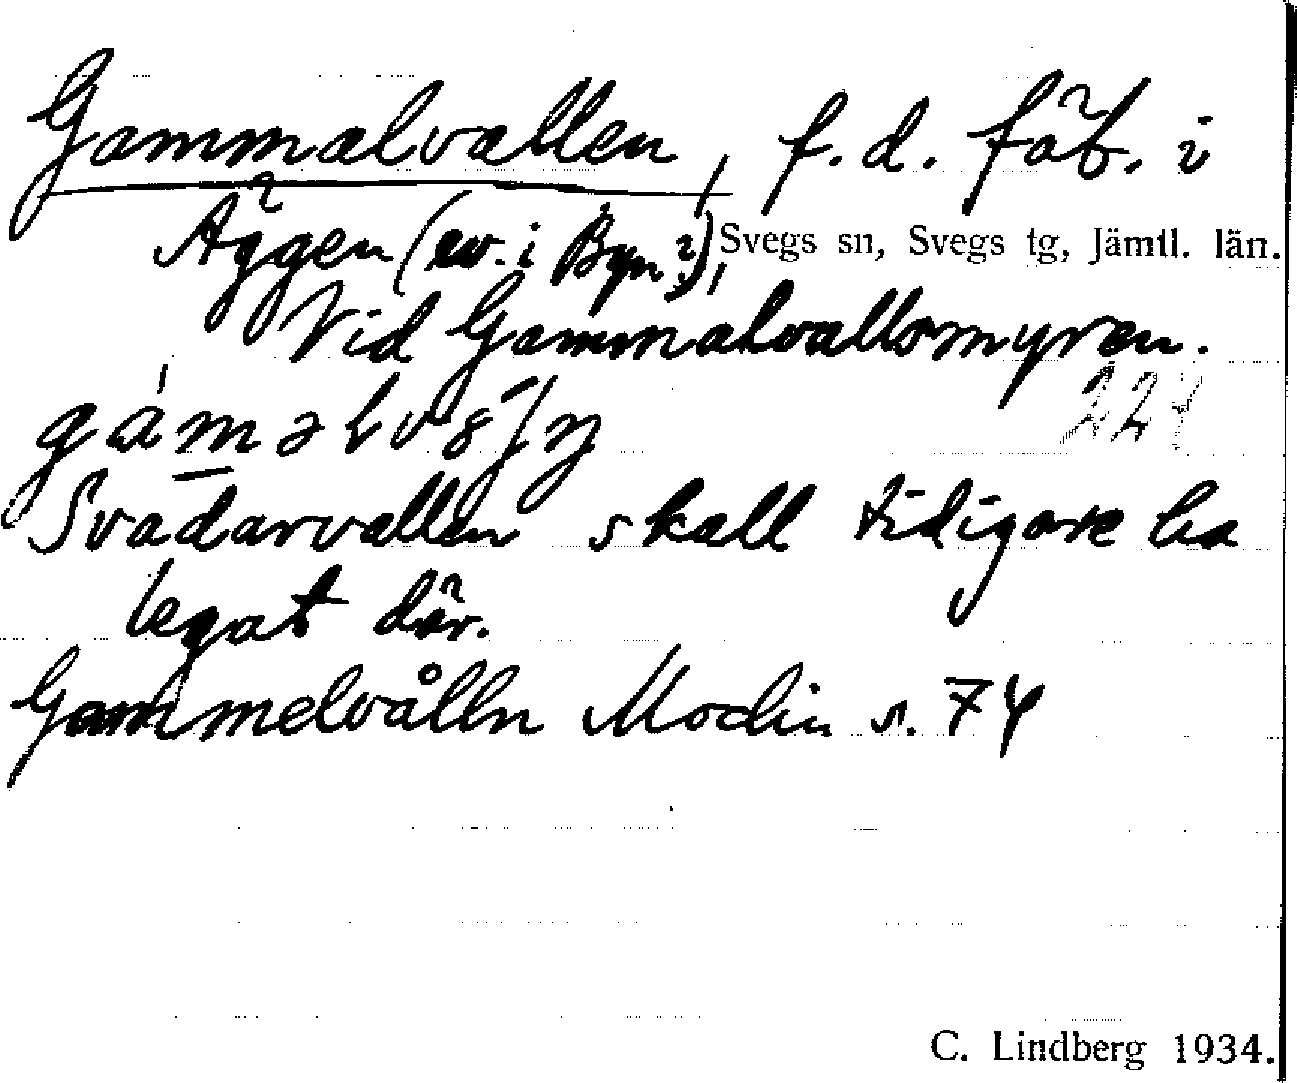 Gammalvallen, f.d. fäb. i
Äggen (ev. i Byn?), Svegs sn, Svegs tg, Jämtl. län.
Vid Gammalvallsmyren.
224
Svadarvallen skall tidigare ha
legat där.
Gammelvålln Modin s. 74
C. Lindberg 1934.